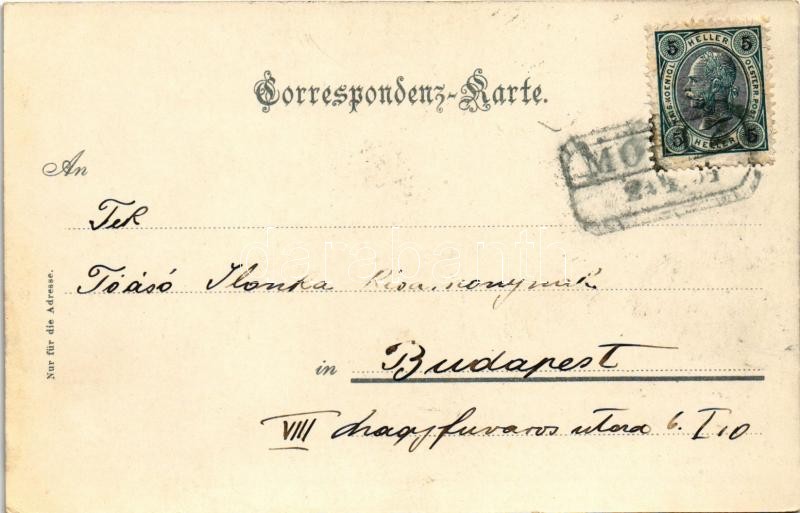 Correspondenz-Karte.
5 HELLER 5
KAIS. KOENIGL. OESTERR. POST
5 HELLER 5
MO
An
Tek
Tóásó Ilonka
in Budapest
VIII Nagyfuvaros utca 6. I 10
Nur für die Adresse.
darabanth